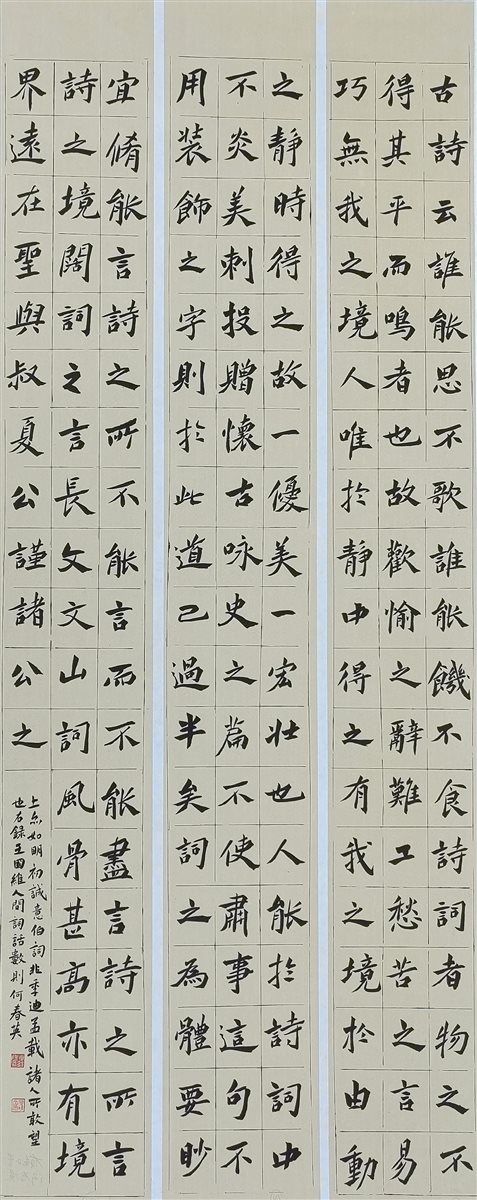 古詩云誰能思不歌誰能饑不食詩詞者物之不
得其平而鳴者也故歡愉之辭難工愁苦之言易
巧無我之境人唯於靜中得之有我之境於由動
之靜時得之故一優美一宏壯也人能於詩詞中
不炎美刺投贈懷古咏史之篇不使肅事這句不
用裝飾之字則於此道已過半矣詞之為體要眇
宜脩能言詩之所不能言而不能盡言詩之所言
詩之境闊詞之言長文文山詞風骨甚高亦有境
界遠在聖與叔夏公謹諸公之
上亦如明初誠意伯詞非季迪孟載諸人所敢望
也右錄王國維人間詞話數則何春英